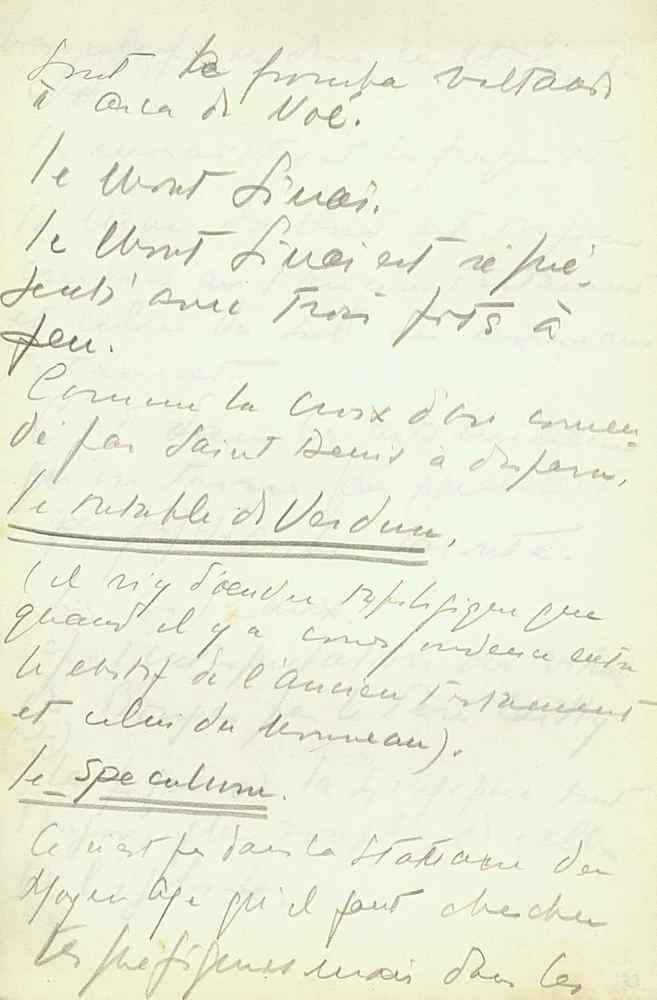 Sont
à arca de Noé.
le Mont Sinaï.
le Mont Sinaï est repré-
senté avec trois pots à
feu.
Comme la croix d'ore
de par Saint Denis à
le retable de Verdun.
(il n'y d'ordre que
quand il y a correspondance entre
le de l'ancien Testament
et celui du nouveau).
le speculum.
Ce n'est pas dans la statuaire du
Moyen Age qu'il faut chercher
les préfigures mais dans les